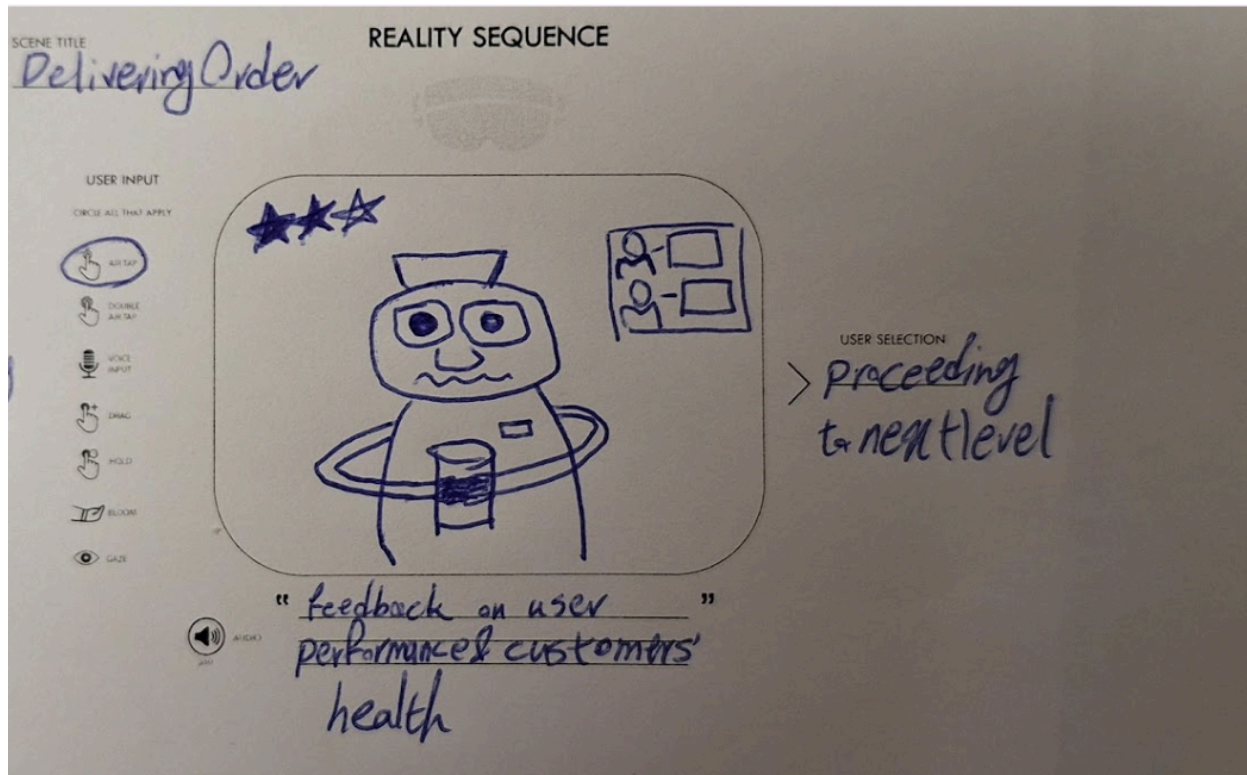 SCENE TITLE
REALITY SEQUENCE
Delivering Order
USER INPUT
CIRCLE ALL THAT APPLY
AIR TAP
DOUBLE
AIR TAP
VOICE
INPUT
DRAG
HOLD
BLOOM
GAZE
USER SELECTION
proceeding
to next level
AUDIO
“ feedback on user ”
performance & customers'
health